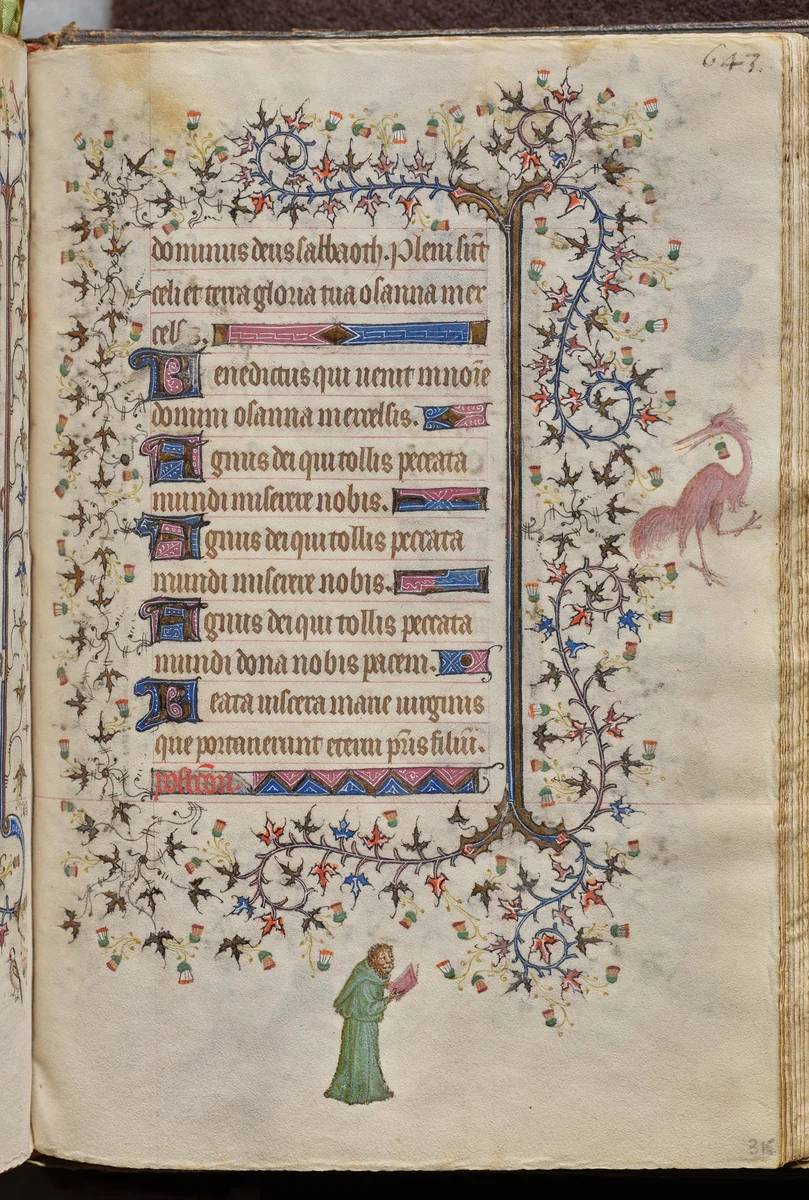 643.
dominus deus sabbaoth. Pleni sūt
celi et terra gloria tua osanna in ex
celsis.
Benedictus qui uenit in noīe
domini osanna in excelsis.
Agnus dei qui tollis peccata
mundi miserere nobis.
Agnus dei qui tollis peccata
mundi miserere nobis.
Agnus dei qui tollis peccata
mundi dona nobis pacem.
Beata uiscera marie uirginis
que portauerunt eterni pr̄is filiū.
postcōn.